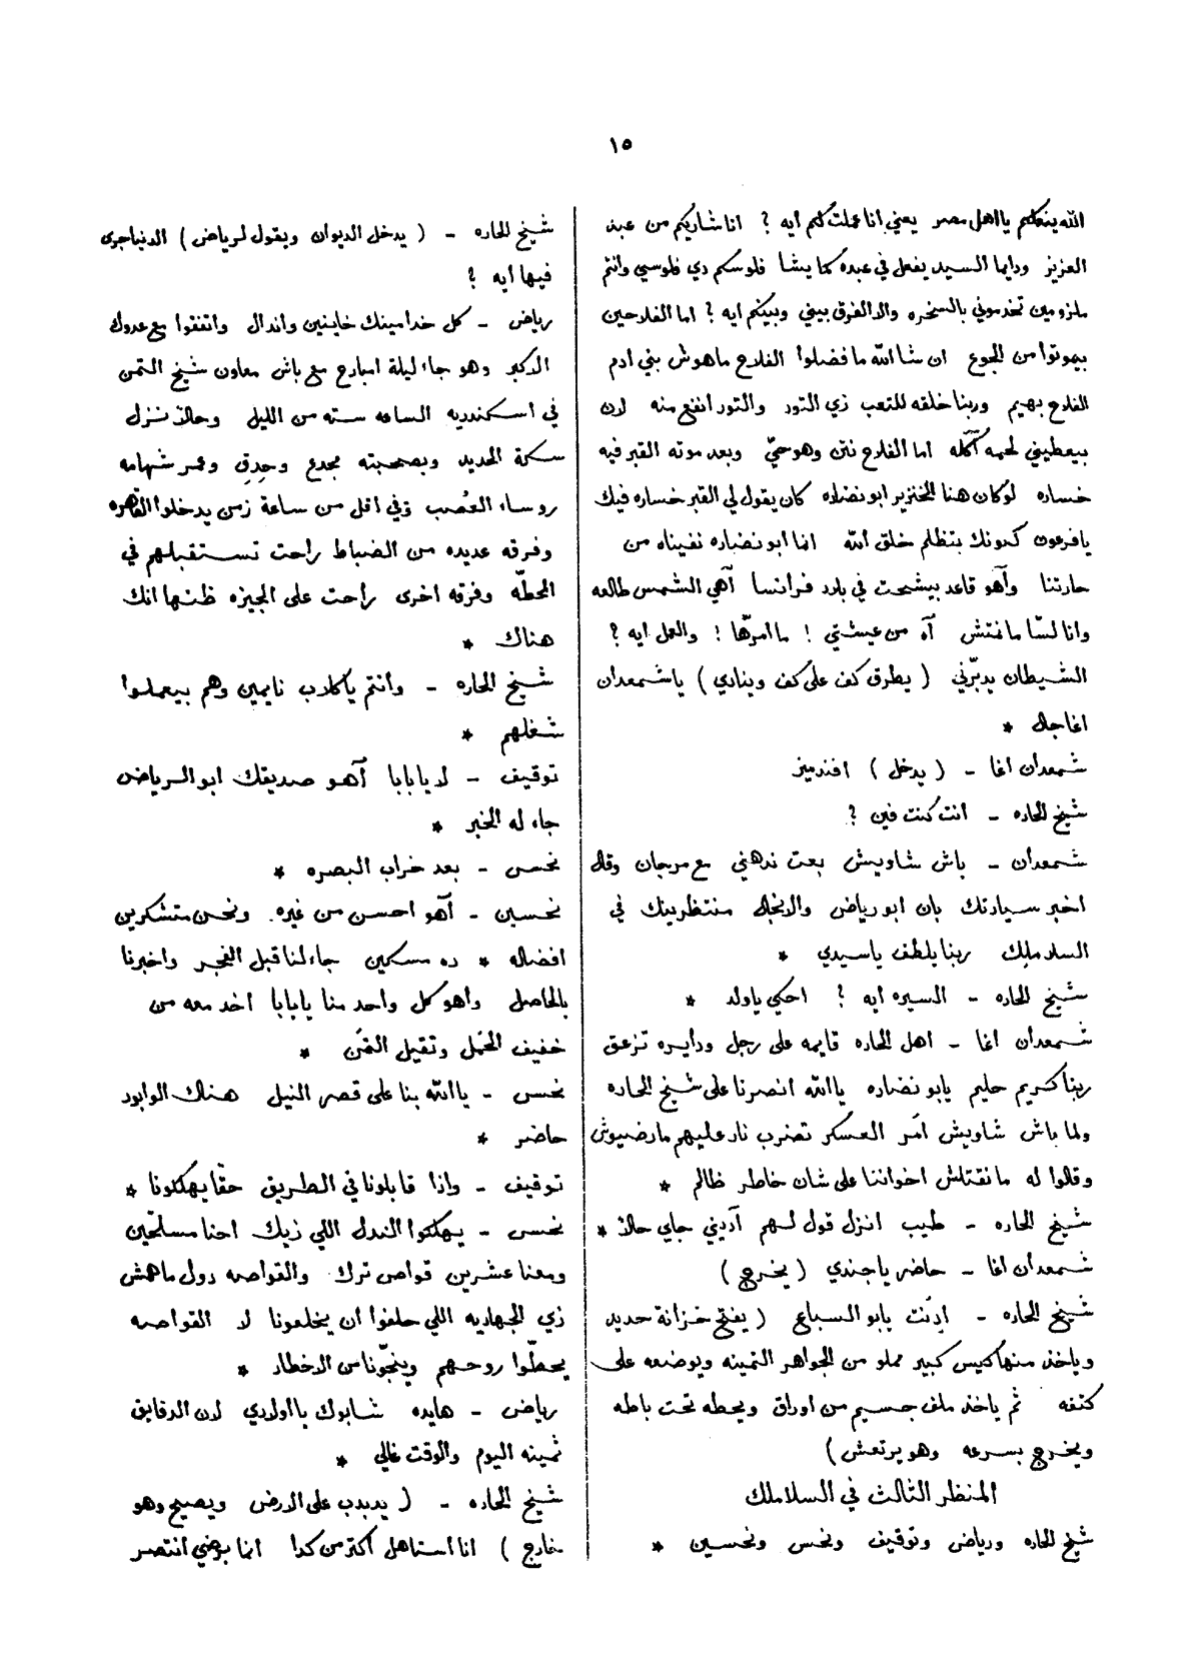 ١٥
الله ينعلكم يا اهل مصر يعني انا عملت لكم ايه ؟ انا شاريكم من عبد
العزيز ودايما السيد يفعل في عبده كما يشا فلوسكم دي فلوسي وانتم
ملزومين تخدموني بالسخره والا الفرق بيني وبينكم ايه ؟ اما الفلاحين
بيموتوا من الجوع ان شا الله ما فضلوا الفلاح ماهوش بني ادم
الفلاح بهيم وربنا خلقه للتعب زي التور والتور انفع منه لان
بيعطيني لحمه آكله اما الفلاح نتن وهو حيّ وبعد موته القبر فيه
خساره لو كان هنا الخنزير ابو نضاره كان يقول لي القبر خساره فيك
يا فرعون كونك بتظلم خلق الله انما ابو نضاره نفيناه من
حارتنا وآهو قاعد بيشحت في بلاد فرانسا آهي الشمس طالعه
وانا لسّا ما نمتش آه من عيشتي ! ما امرّها ! والعمل ايه ؟
الشيطان يدبّرني ( يطرق كف على كف وينادي ) يا شمعدان
اغاجك *
شمعدان اغا - ( يدخل ) افندميز
شيخ الحاره - انت كنت فين ؟
شمعدان - باش شاويش بعت ندهني مع مرجان وقال
اخبر سيادتك بان ابو رياض والانجال منتظرينك في
السلاملك ربنا يلطف يا سيدي *
شيخ الحاره - السيره ايه ؟ احكي يا ولد *
شمعدان اغا - اهل الحاره قايمه على رجل ودايره تزعق
ربنا كريم حليم يابو نضاره يا الله انصرنا على شيخ الحاره
ولما باش شاويش امر العسكر تضرب نار عليهم ما رضيوش
وقالوا له ما نقتلش اخواتنا على شان خاطر ظالم *
شيخ الحاره - طيب انزل قول لهم آديني جاي حالا *
شمعدان اغا - حاضر يا جندي ( يخرج )
شيخ الحاره - ادِنت يابو السباع ( يفتح خزانة حديد
وياخذ منها كيس كبير مملو من الجواهر الثمينه ويوضعه على
كتفه ثم ياخذ ملف جسيم من اوراق ويحطه تحت باطه
ويخرج بسرعه وهو يرتعش )
المنظر الثالث في السلاملك
شيخ الحاره ورياض وتوقيف ونحس ونحسين *
شيخ الحاره - ( يدخل الديوان ويقول لرياض ) الدنيا جرى
فيها ايه ؟
رياض - كل خدامينك خاينين واندال واتفقوا مع عدوك
الاكبر وهو جاء ليلة امبارح مع باش معاون شيخ التمن
في اسكندريه الساعه سته من الليل وحالا نزل
سكة الحديد وبصحبته مجدع وحدق وعمر شهامه
روساء العُصب وفي اقل من ساعة زمن يدخلوا القاهره
وفرقه عديده من الضباط راحت تستقبلهم في
المحطّه وفرقه اخرى راحت على الجيزه ظنها انك
هناك *
شيخ الحاره - وانتم يا كلاب نايمين وهم بيعملوا
شغلهم *
توقيف - لا يا بابا آهو صديقك ابو الرياض
جاء له الخبر *
نحس - بعد خراب البصره *
نحسين - آهو احسن من غيره ونحن متشكرين
افضاله * ده مسكين جاء لنا قبل الفجر واخبرنا
بالحاصل وآهو كل واحد منا يا بابا اخد معه من
خفيف الحمل وتقيل التمن *
نحس - يا الله بنا على قصر النيل هناك الوابور
حاضر *
توقيف - واذا قابلونا في الطريق حقًا يهلكونا *
نحس - يهلكوا الندل اللي زيك احنا مسلحّين
ومعنا عشرين قواص ترك والقواصه دول ماهمش
زي الجهاديه اللي حلفوا ان يخلعونا لا القواصه
يحطّوا روحهم وينجّونا من الاخطار *
رياض - هايده شابوك يا اولادي لان الدقايق
ثمينه اليوم والوقت غالي *
شيخ الحاره - ( يدبدب على الارض ويصيح وهو
خارج ) انا استاهل اكتر من كدا انما برضي انتصر